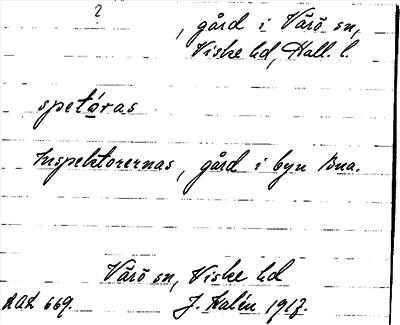 2
, gård i Värö sn,
Viske hd, Hall. l.
spetóras
Inspektorernas, gård i byn Bua.
Värö sn, Viske hd
RAÄ 669. J. Kalén 1917.